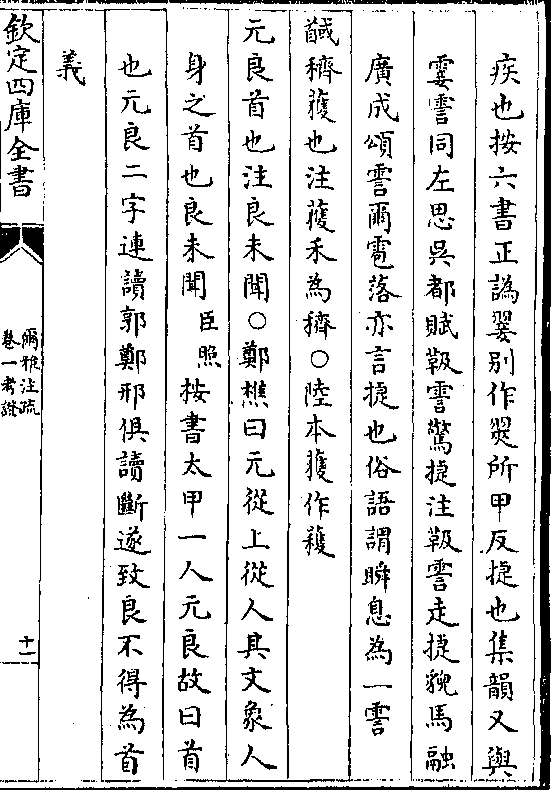 疾也按六書正譌翣別作翜所甲反捷也集韻又與
霎霅同左思吳都賦靸霅驚捷注靸霅走捷貌馬融
廣成頌霅爾雹落亦言捷也俗語謂瞬息為一霅
馘穧蒦也注蒦禾為穧○陸本蒦作穫
元良首也注良未聞○鄭樵曰元從上從人其文象人
身之首也良未聞臣照按書太甲一人元良故曰首
也元良二字連讀郭鄭邢俱讀斷遂致良不得為首
義
欽定四庫全書
爾雅注疏
卷一考證
十一